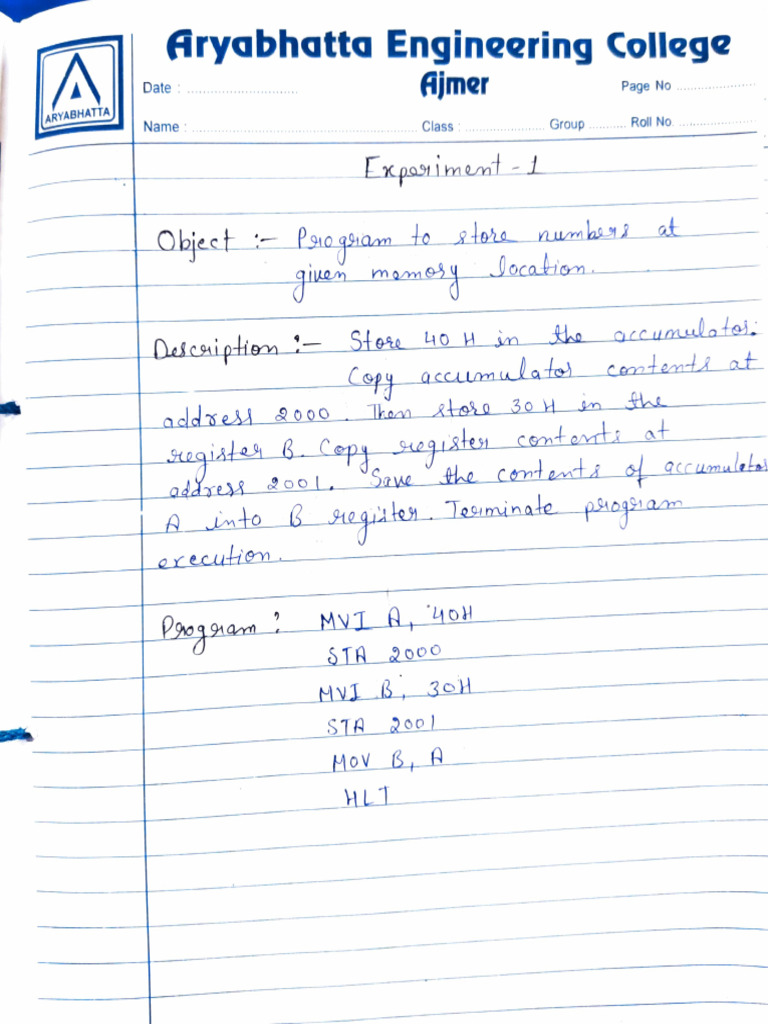 Aryabhatta Engineering College
Ajmer
ARYABHATTA
Date : ............................ Page No ....................
Name : ............................ Class : .................... Group .......... Roll No. ....................
Experiment - 1
Object :- Program to store numbers at
given memory location.
Description :- Store 40 H in the accumulator.
Copy accumulator contents at
address 2000. Then store 30 H in the
register B. Copy register contents at
address 2001. Save the contents of accumulator
A into B register. Terminate program
execution.
Program : MVI A, 40H
STA 2000
MVI B, 30H
STA 2001
MOV B, A
HLT